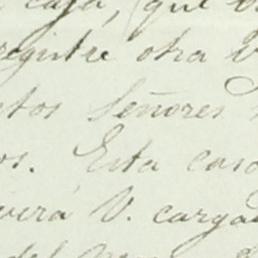 caja, (que
registre otra
tos Señores
os. Esta casa
verá V. carga
del